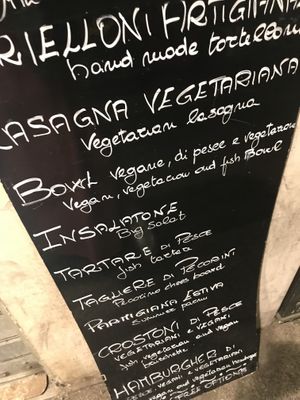 RIELLONI ARTIGIANA
hand made tortellon
LASAGNA VEGETARIANA
Vegetarian lasagna
BOWL vegane, di pesce e vegetariane
vegan, vegetarian and fish Bowl
INSALATONE
Big Salat
TARTARE DI PESCE
fish tartar
TAGLIERE DI PECORINI
Pecorino chees board
PARMIGIANA ESTIVA
Summer
CROSTONI DI PESCE
VEGETARIANI, VEGANI
fish vegetarian, and vegan
bruschette
HAMBURGHER DI
PESCE VEGANI E VEGETARIANI
vegan and vegetarian
FREE OPTIONS